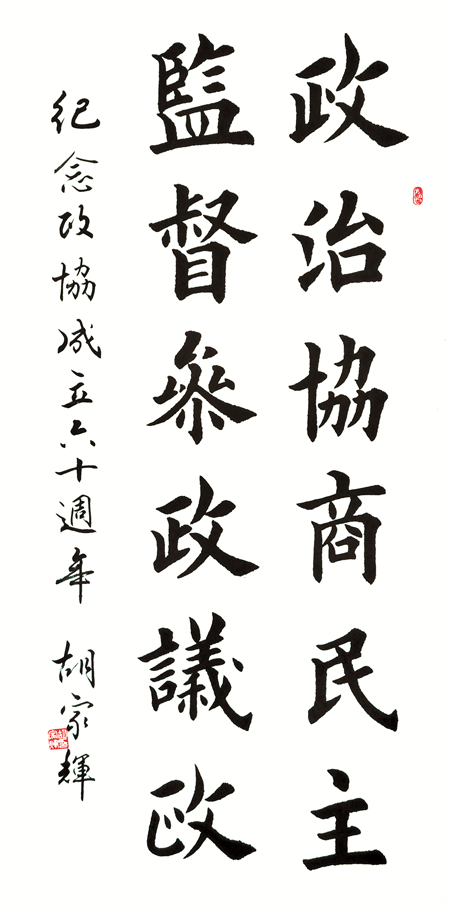 政治協商民主
監督參政議政
紀念政協成立六十週年 胡家輝